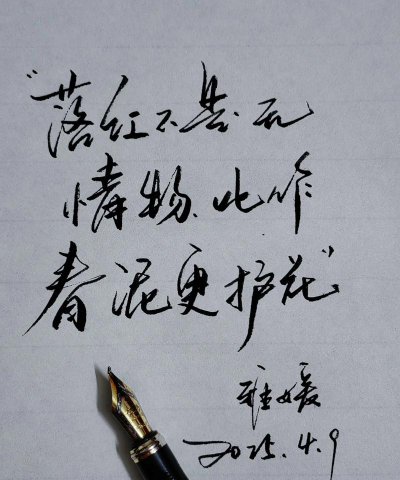 “落红不是无
情物、化作
春泥更护花”
雅媛
2025.4.9